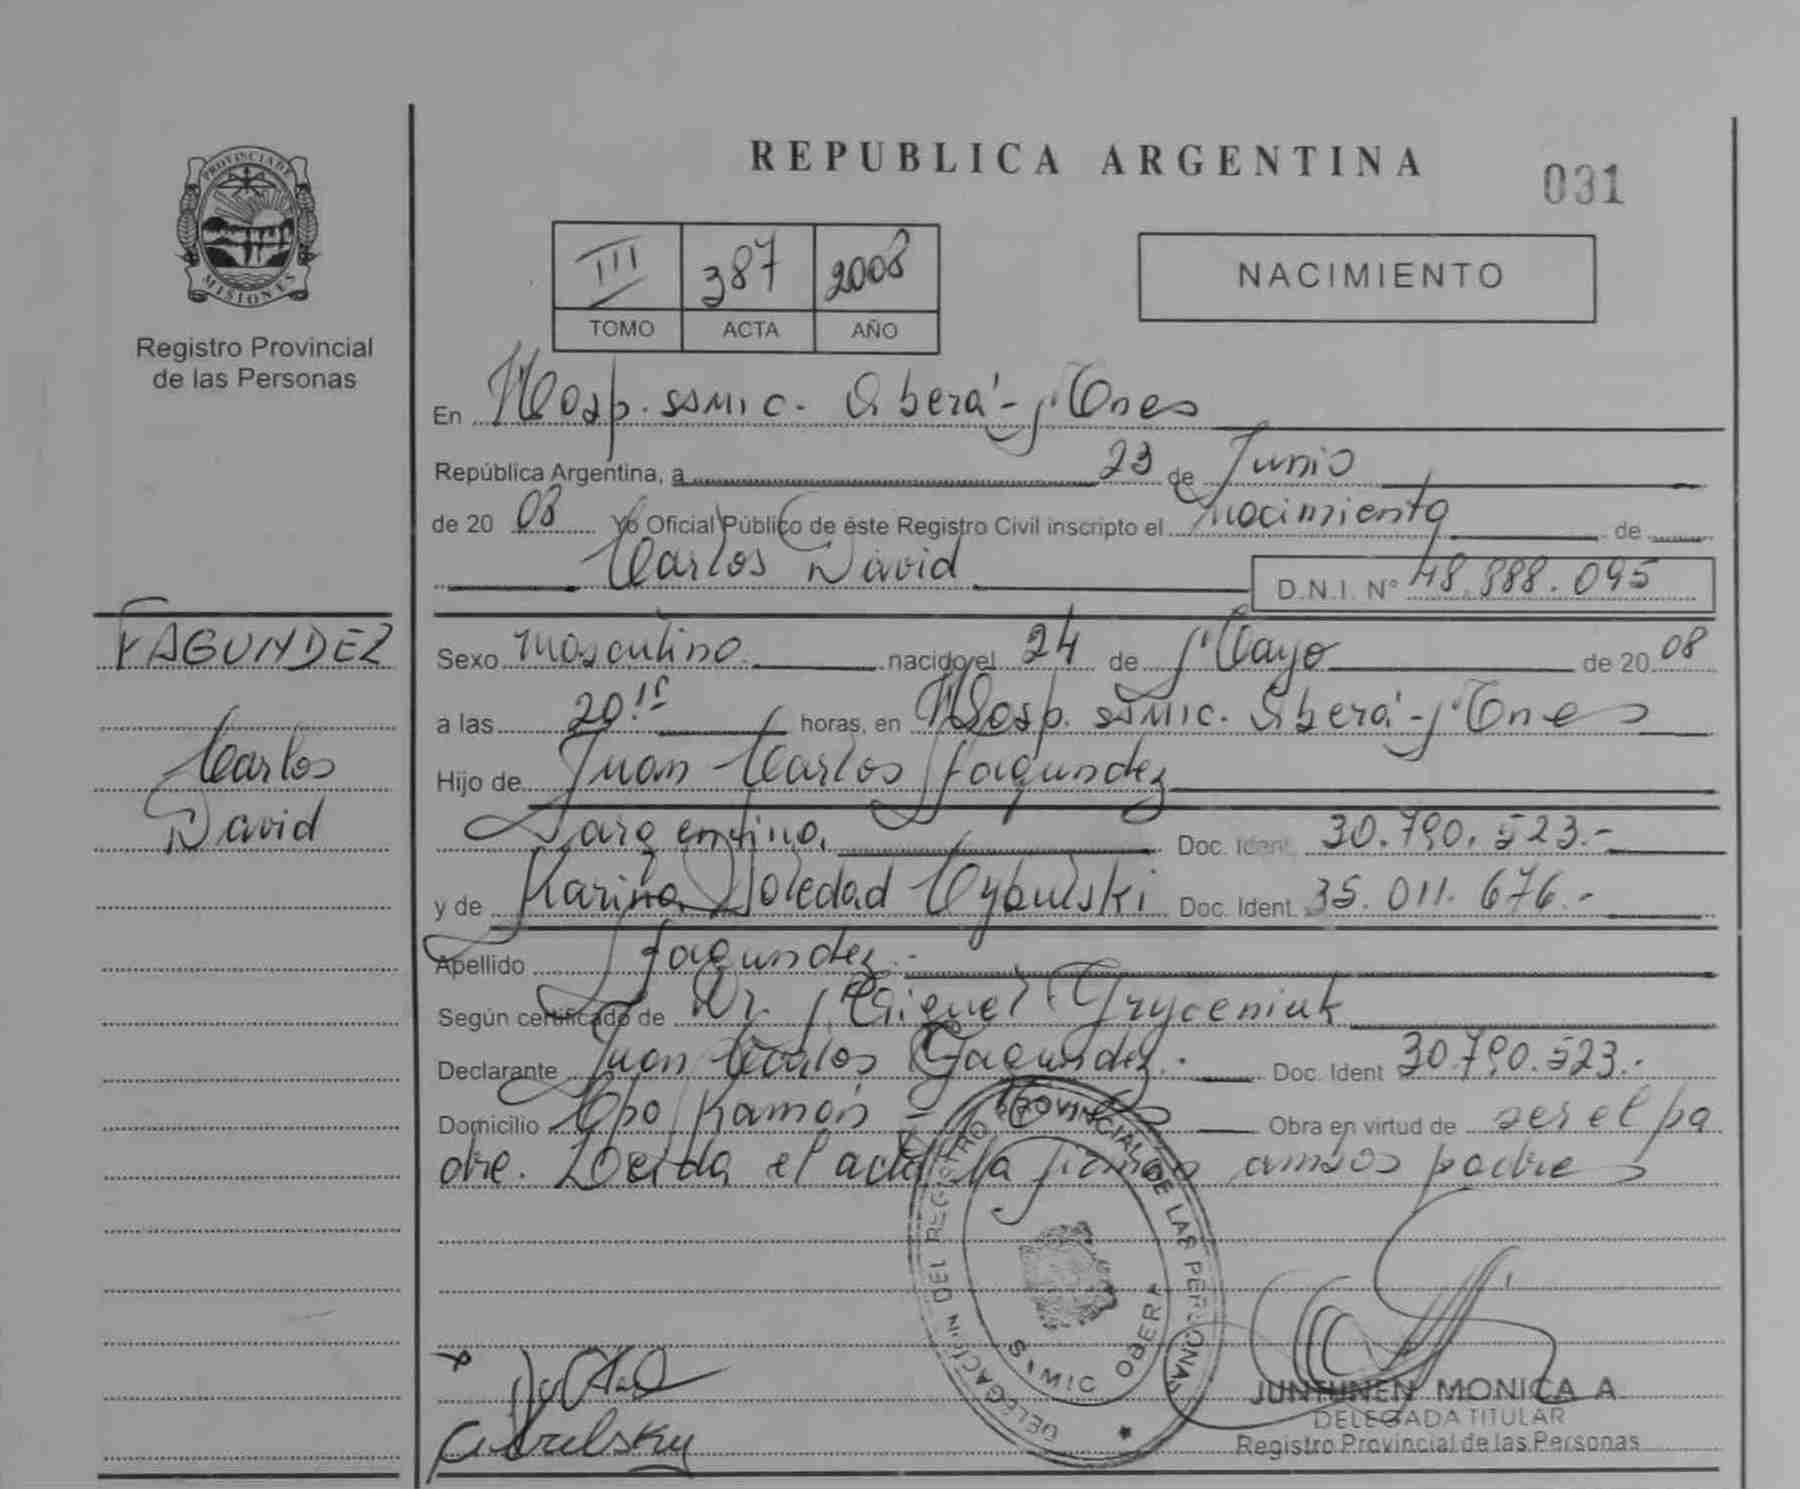 PROVINCIA DE
MISIONES
Registro Provincial
de las Personas
FAGUNDEZ
Carlos
David
REPUBLICA ARGENTINA
031
III 387 2008
TOMO ACTA AÑO
NACIMIENTO
En Hosp. SSMIC. Oberá - Mnes
República Argentina, a 23 de Junio
de 20 08 Yo Oficial Público de éste Registro Civil inscripto el nacimiento de
Carlos David D.N.I. N° 48.888.095
Sexo masculino nacido el 24 de Mayo de 20 08
a las 20:15 horas, en Hosp. SSMIC. Oberá - Mnes
Hijo de Juan Carlos Fagundez
argentino, Doc. Ident. 30.790.523.-
y de Karina Soledad Cybulski Doc. Ident. 35.011.676.-
Apellido Fagundez.-
Según certificado de Dr. Miguel Gryceniuk
Declarante Juan Carlos Fagundez.- Doc. Ident 30.790.523.-
Domicilio Cpo Ramón - Obra en virtud de ser el pa
dre. Leída el acta la firman ambos padres
DELEGACION DEL REGISTRO PROVINCIAL DE LAS PERSONAS
SAMIC OBERA
JUNTUNEN MONICA A
DELEGADA TITULAR
Registro Provincial de las Personas